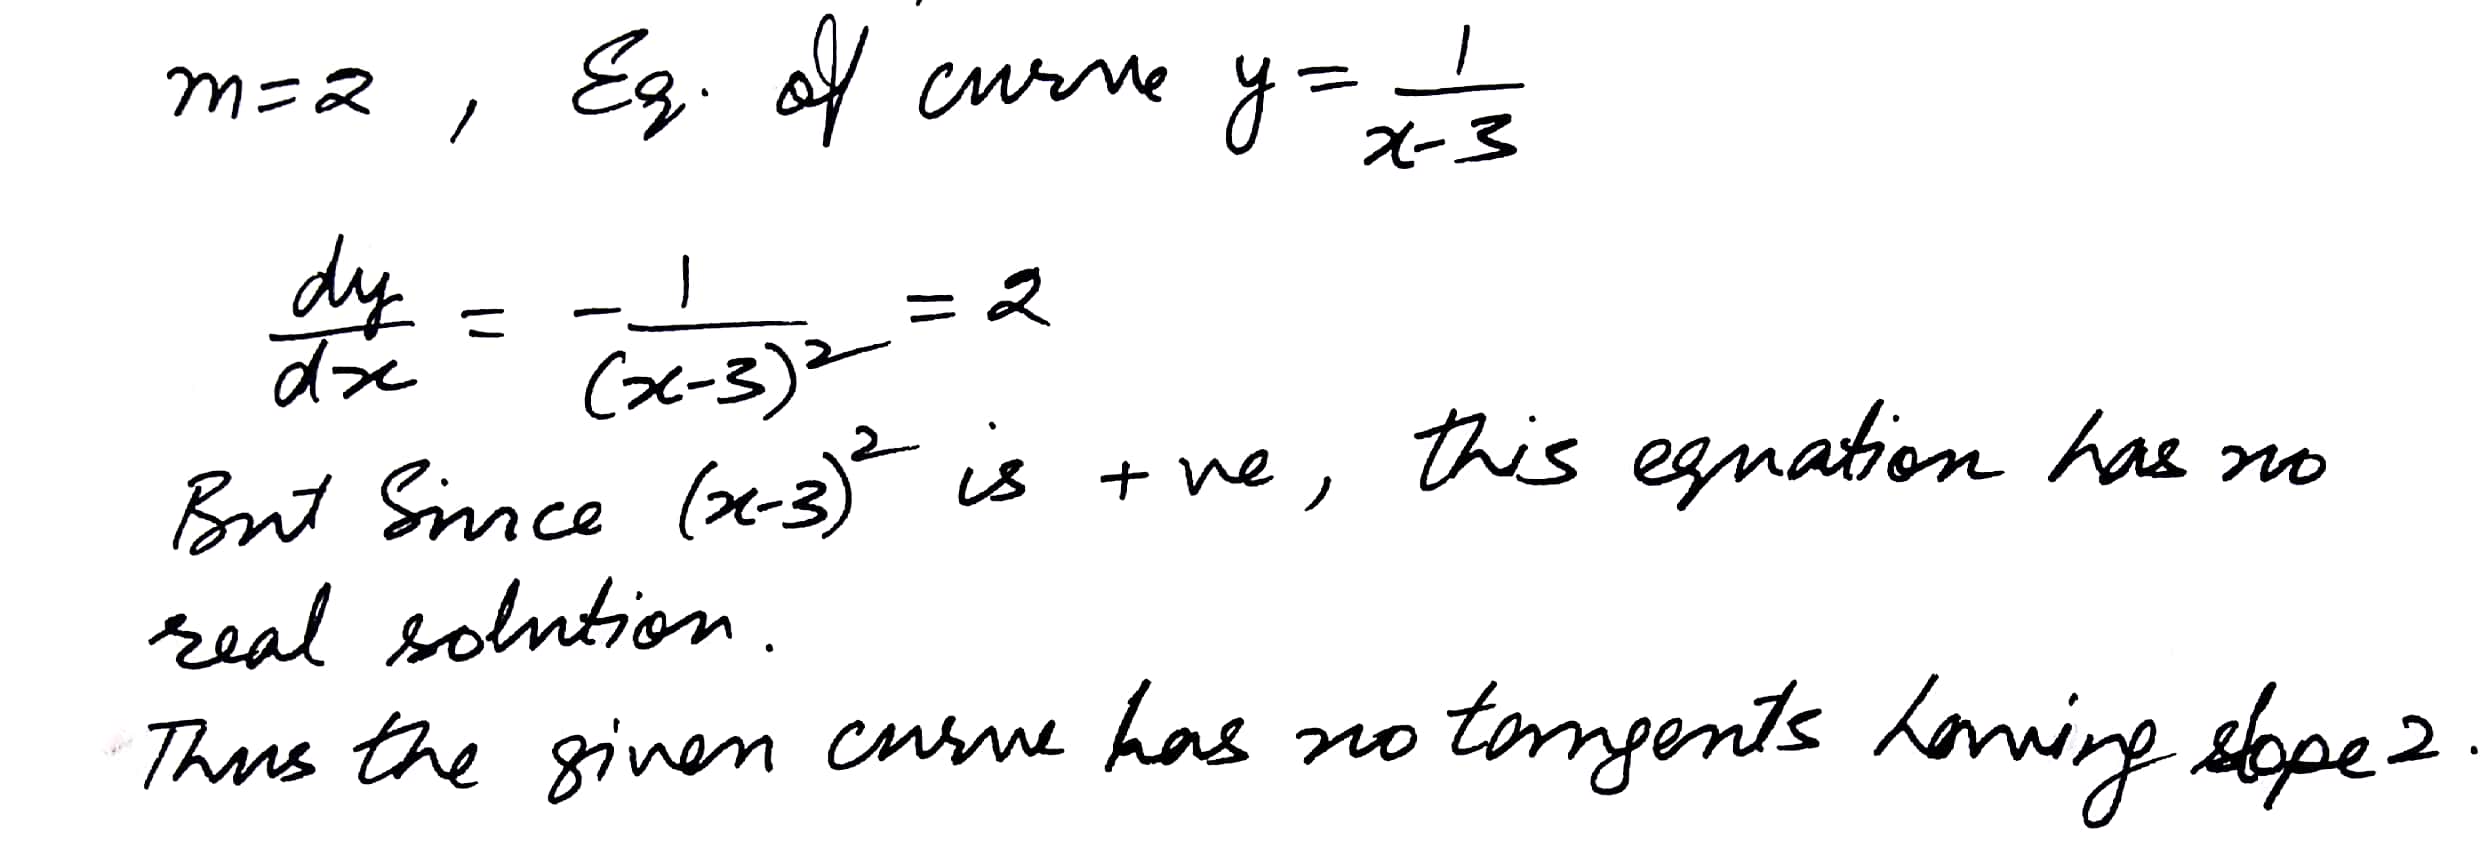 m=2 , Eq. of curve y = 1/(x-3)
dy/dx = -1/(x-3)² = 2
But Since (x-3)² is +ve, this equation has no
real solution.
Thus the given curve has no tangents having slope 2.